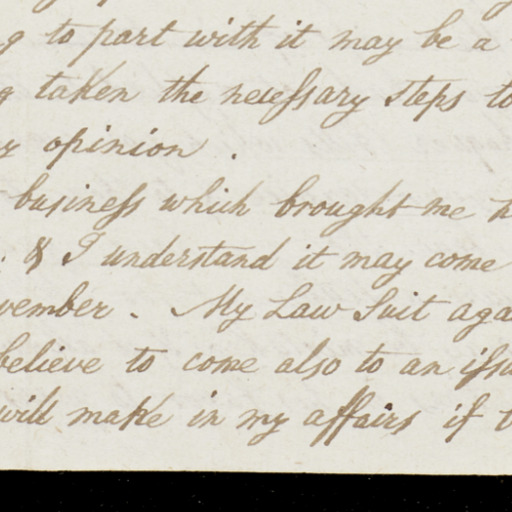 to part with it may be a
taken the necessary steps to
opinion.
business which brought me
. & I understand it may come
vember. My Law Suit aga
believe to come also to an issu
will make in my affairs if t